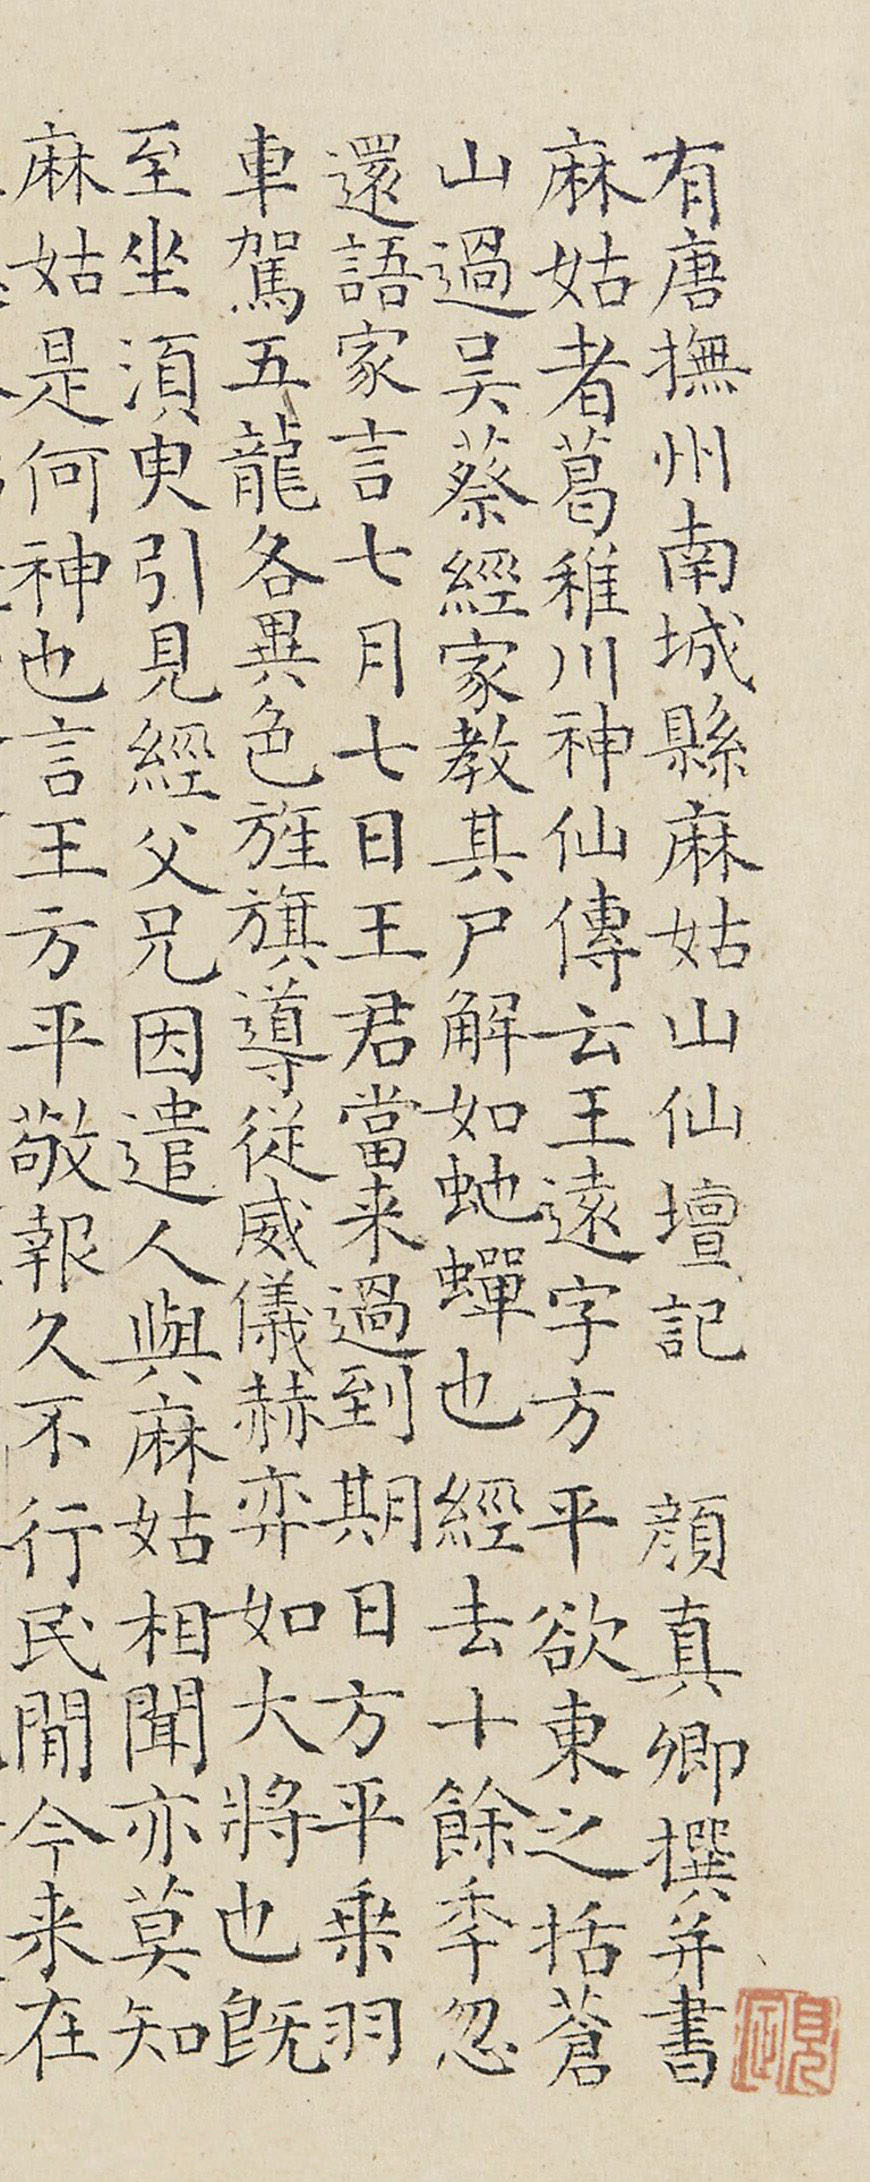 有唐撫州南城縣麻姑山仙壇記　顏真卿撰并書
麻姑者葛稚川神仙傳云王遠字方平欲東之括蒼
山過吳蔡經家教其尸解如虵蟬也經去十餘季忽
還語家言七月七日王君當来過到期日方平乗羽
車駕五龍各異色旌旗導從威儀赫弈如大將也既
至坐須臾引見經父兄因遣人與麻姑相聞亦莫知
麻姑是何神也言王方平敬報久不行民間今来在